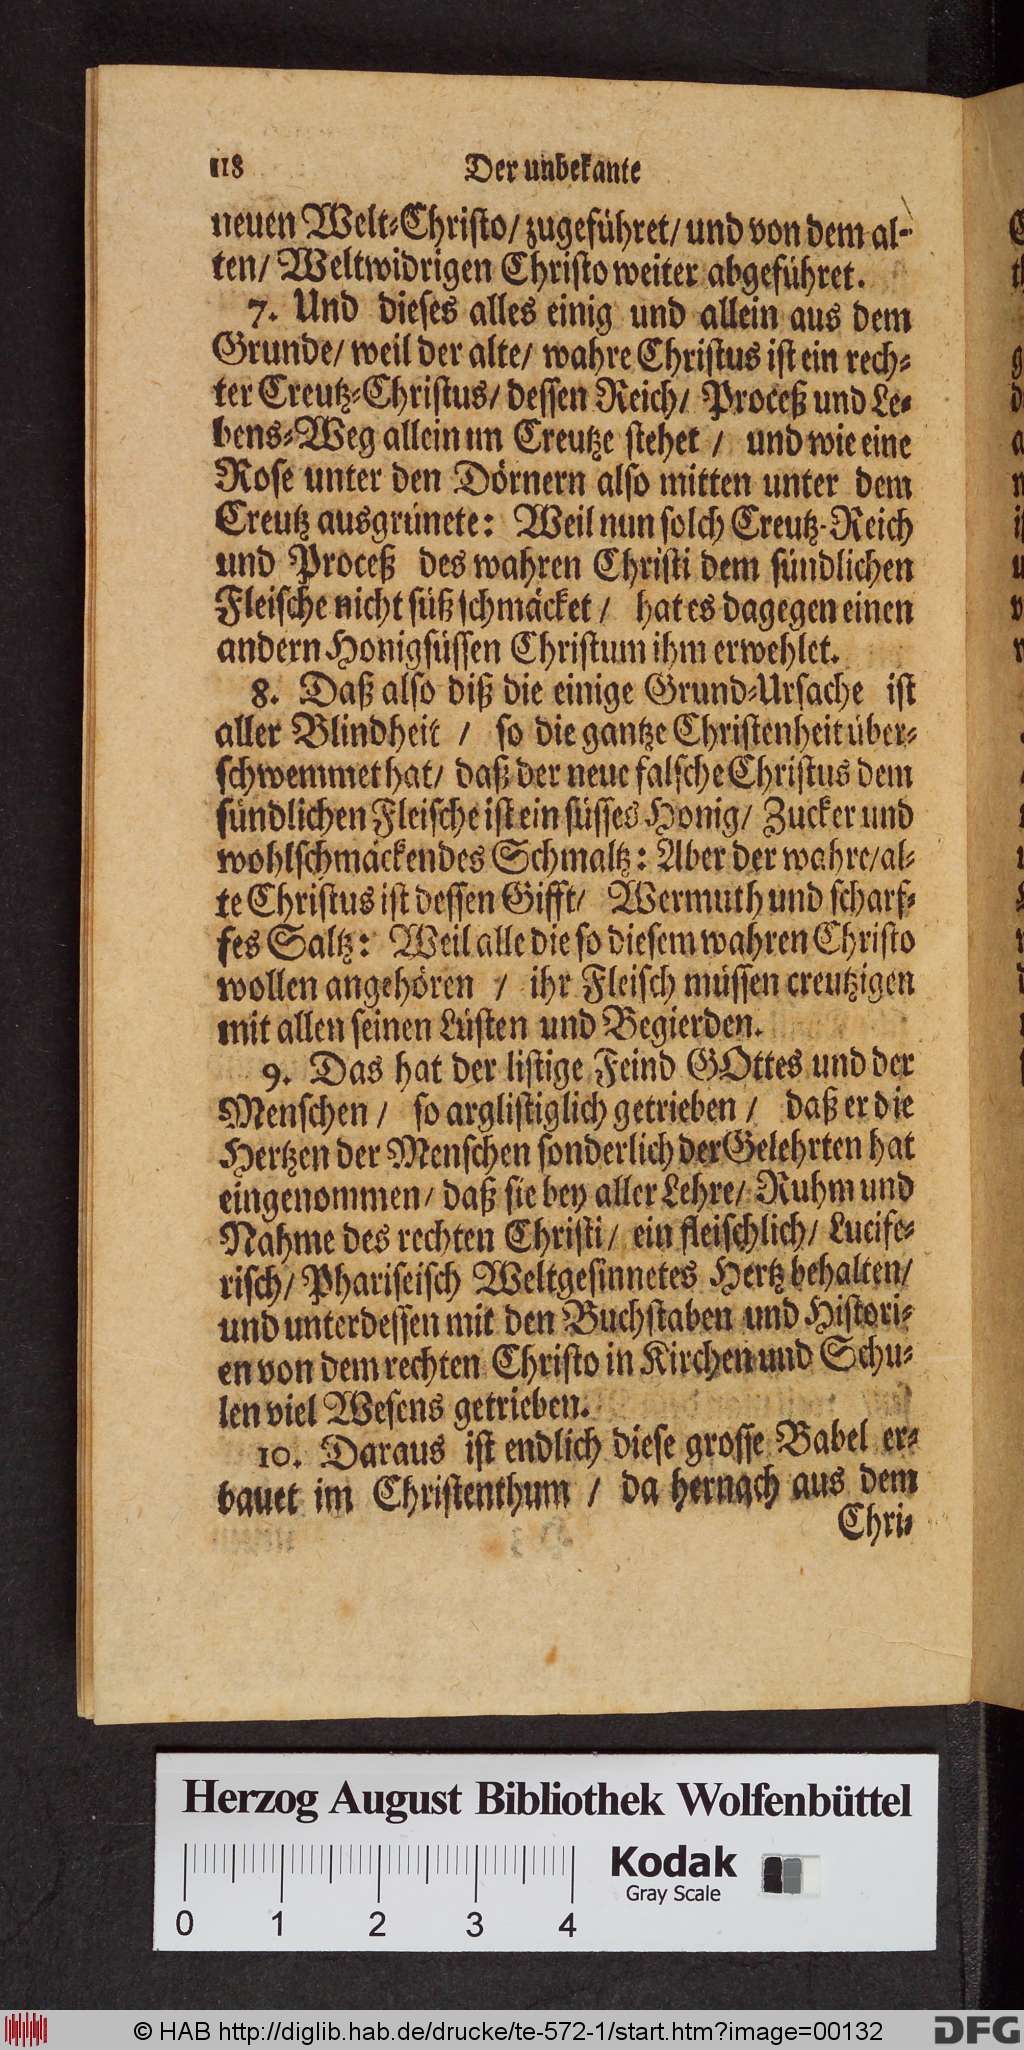 118 Der unbekante
neuen Welt-Christo/ zugeführet/ und von dem al-
ten/ Weltwidrigen Christo weiter abgeführet.
7. Und dieses alles einig und allein aus dem
Grunde/ weil der alte/ wahre Christus ist ein rech-
ter Creutz-Christus/ dessen Reich/ Proceß und Le-
bens-Weg allein im Creutze stehet / und wie eine
Rose unter den Dörnern also mitten unter dem
Creutz ausgrünete: Weil nun solch Creutz-Reich
und Proceß des wahren Christi dem sündlichen
Fleische nicht süß schmäcket / hat es dagegen einen
andern Honigsüssen Christum ihm erwehlet.
8. Daß also diß die einige Grund-Ursache ist
aller Blindheit / so die gantze Christenheit über-
schwemmet hat/ daß der neue falsche Christus dem
sündlichen Fleische ist ein süsses Honig/ Zucker und
wohlschmäckendes Schmaltz: Aber der wahre/ al-
te Christus ist dessen Gifft/ Wermuth und scharf-
fes Saltz: Weil alle die so diesem wahren Christo
wollen angehören / ihr Fleisch müssen creutzigen
mit allen seinen Lüsten und Begierden.
9. Das hat der listige Feind GOttes und der
Menschen / so arglistiglich getrieben / daß er die
Hertzen der Menschen sonderlich der Gelehrten hat
eingenommen/ daß sie bey aller Lehre/ Ruhm und
Nahme des rechten Christi/ ein fleischlich/ Lucife-
risch/ Phariseisch Weltgesinnetes Hertz behalten/
und unterdessen mit den Buchstaben und Histori-
en von dem rechten Christo in Kirchen und Schu-
len viel Wesens getrieben.
10. Daraus ist endlich diese grosse Babel er-
bauet im Christenthum / da hernach aus dem
Chri-
Herzog August Bibliothek Wolfenbüttel
Kodak
Gray Scale
0 1 2 3 4
© HAB http://diglib.hab.de/drucke/te-572-1/start.htm?image=00132
DFG